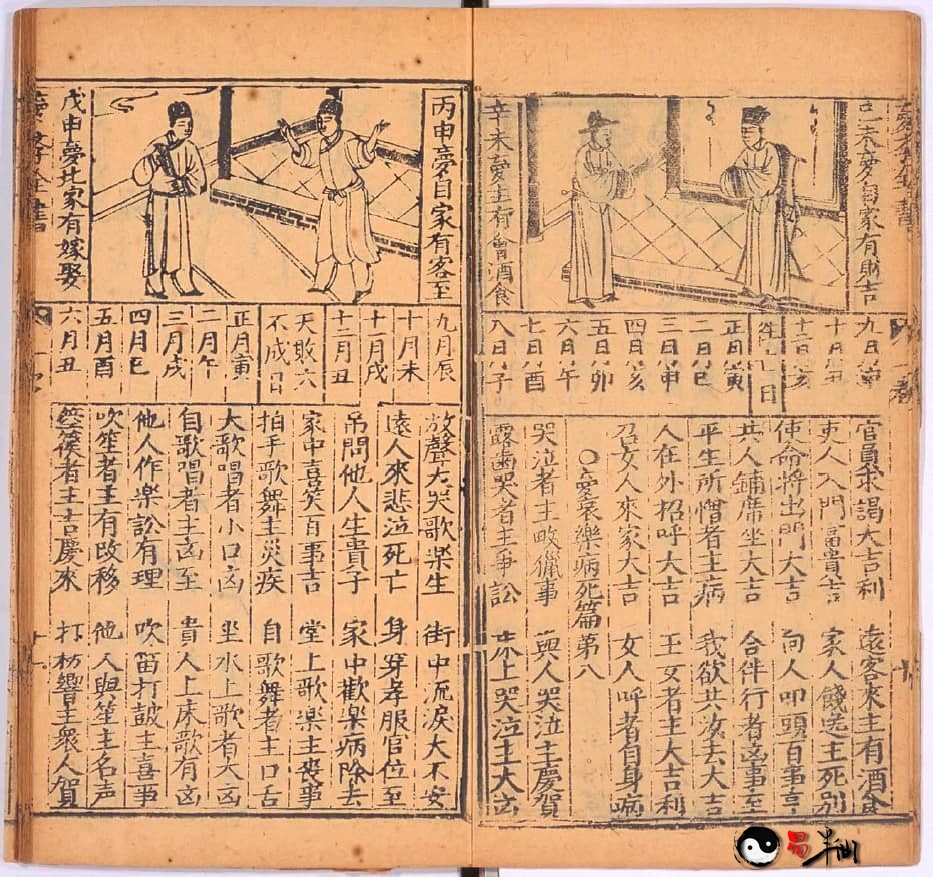 己未夢自家有財吉
辛未夢主有會酒食
九月
十月丑
十二月亥
日
正月寅
二月巳
三月申
四月亥
五月卯
六月午
七月酉
八月子
官員求謁大吉利
遠客來主有酒食
吏人入門富貴吉
家人餞送主死別
使命將出門大吉
向人叩頭百事亨
共人鋪席坐大吉
合伴行者凶事至
平生所憎者主病
我欲共汝去大吉
人在外招呼大吉
王女者主大吉利
召女人來家大吉
女人呼者自身病
○夢哀樂病死篇第八
哭泣者主畋獵事
與人哭泣主慶賀
露齒哭者主爭訟
床上哭泣主大凶
丙申夢自家有客至
戊申夢其家有嫁娶
九月辰
十月未
十一月戌
十二月丑
天敗六
不成日
正月寅
二月午
三月戌
四月巳
五月酉
六月丑
放聲大哭歌樂生
街中流淚大不安
遠人來悲泣死亡
身穿孝服官位至
弔問他人生貴子
家中歡樂病除去
家中喜笑百事吉
堂上歌樂主喪事
拍手歌舞主災疾
自歌舞者主口舌
大歌唱者小口凶
坐水上歌者大凶
自歌唱者主凶至
貴人上床歌有凶
他人作樂訟有理
吹笛打鼓主喜事
吹笙者主有改移
他人與笙主名声
箜篌者主吉慶來
打枋響主衆人賀
易